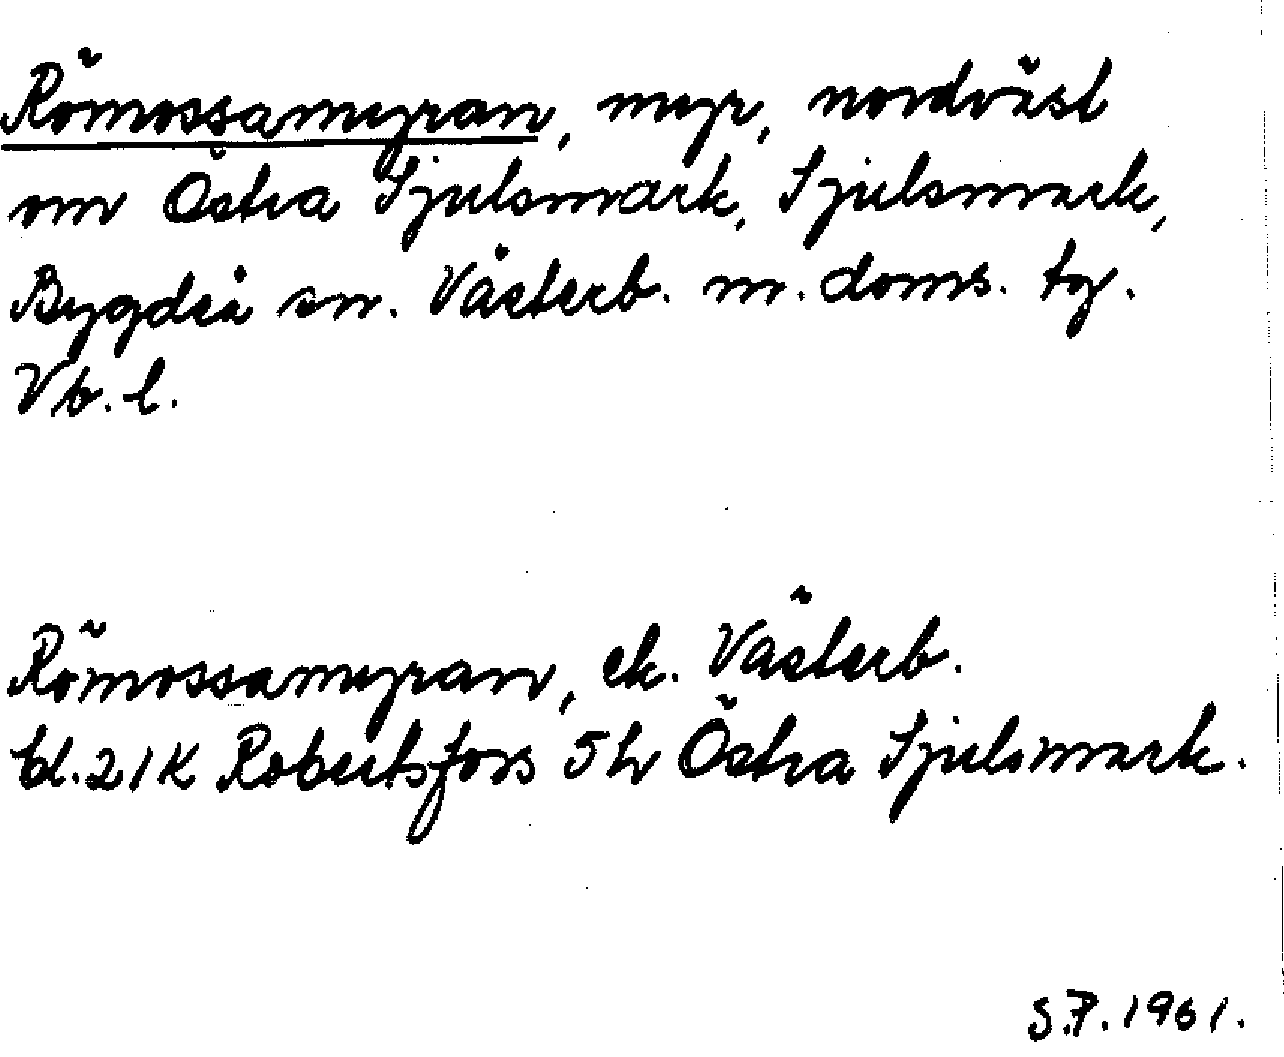 Römossamyran, myr, nordväst
om Östra Sjulsmark, Sjulsmark,
Bygdeå sn. Västerb. m. doms. tg.
Vb. l.
Römossamyran, ek. Västerb.
bl. 21K Robertsfors 5h Östra Sjulsmark.
S.P. 1961.